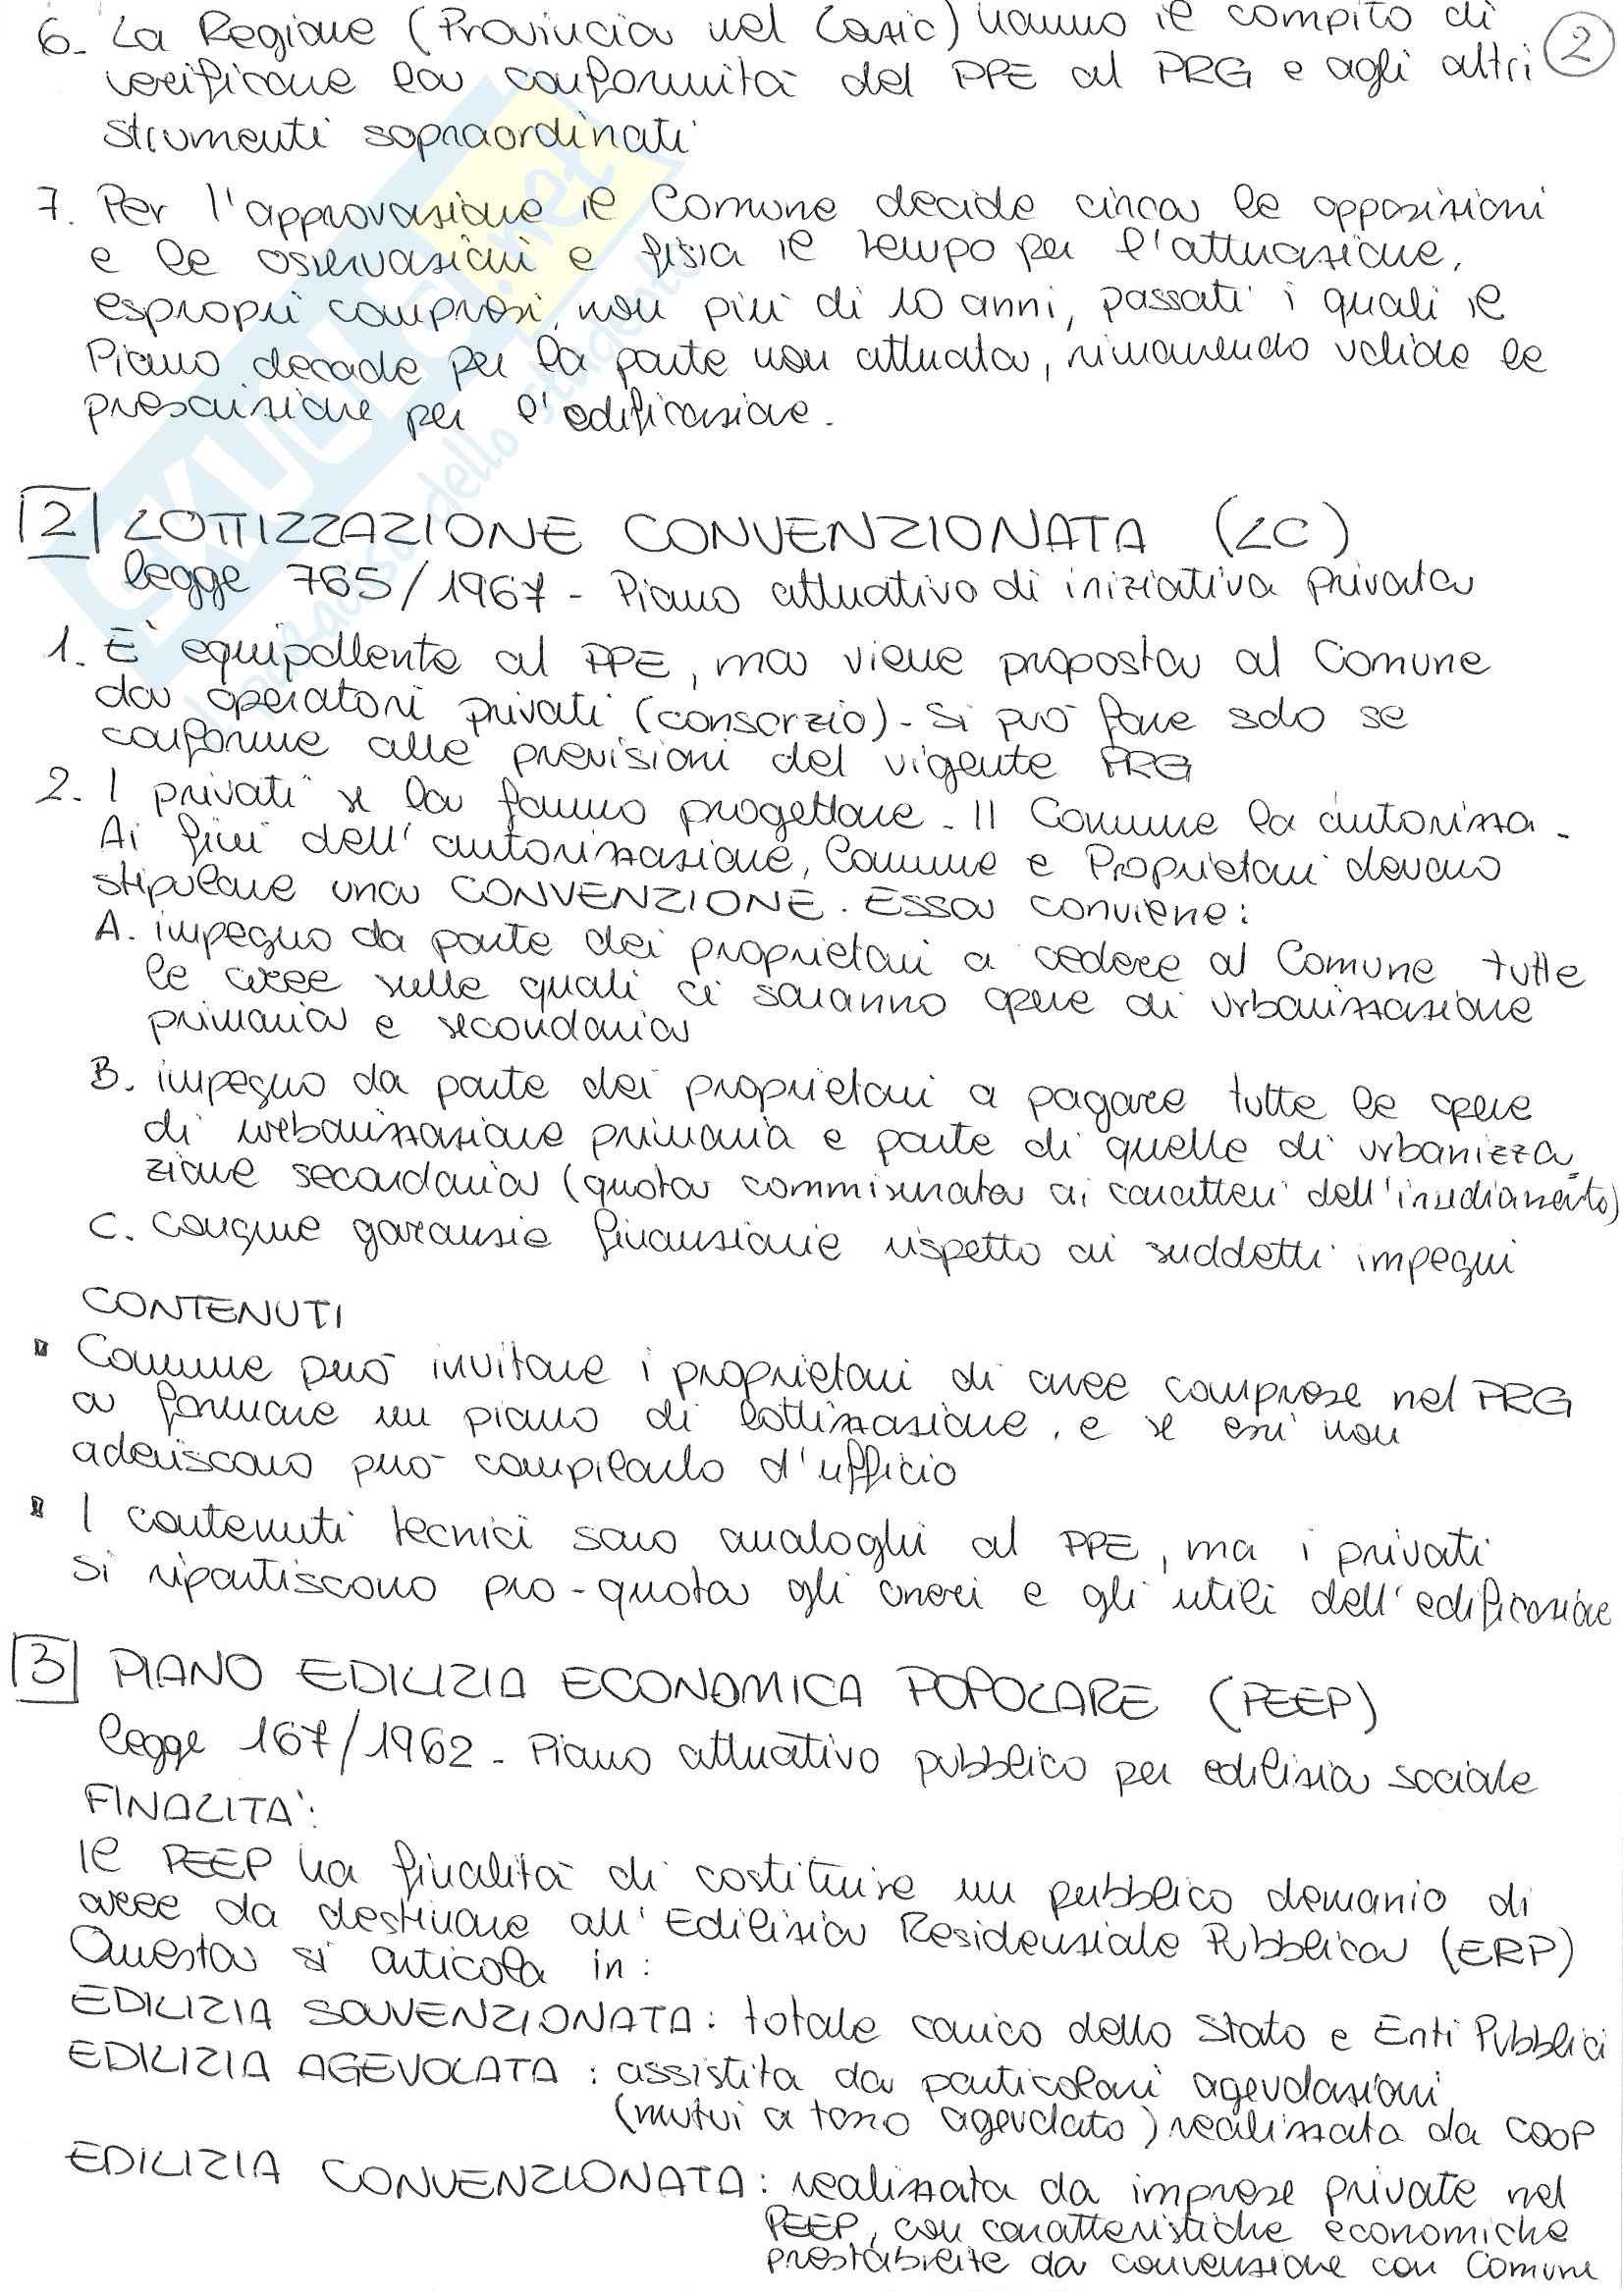 6. La Regione (Provincia nel Lazio) hanno il compito di
2
verificare la conformità del PPE al PRG e agli altri
strumenti sopraordinati
7. Per l'approvazione il Comune decide circa le opposizioni
e le osservazioni e fissa il tempo per l'attuazione,
espropri compresi, non più di 10 anni, passati i quali il
Piano decade per la parte non attuata, rimanendo valide le
prescrizione per l'edificazione.
2 LOTTIZZAZIONE CONVENZIONATA (LC)
legge 765/1967 - Piano attuativo di iniziativa privata
1. E' equipollente al PPE, ma viene proposta al Comune
da operatori privati (consorzio) - Si può fare solo se
conforme alle previsioni del vigente PRG
2. I privati se la fanno progettare - Il Comune la autorizza -
Ai fini dell'autorizzazione, Comune e Proprietari devono
stipulare una CONVENZIONE. Essa conviene:
A. impegno da parte dei proprietari a cedere al Comune tutte
le aree sulle quali ci saranno opere di urbanizzazione
primaria e secondaria
B. impegno da parte dei proprietari a pagare tutte le opere
di urbanizzazione primaria e parte di quelle di urbanizza=
zione secondaria (quota commisurata ai caratteri dell'insediamento)
C. congrue garanzie finanziarie rispetto ai suddetti impegni
CONTENUTI
Comune può invitare i proprietari di aree comprese nel PRG
a formare un piano di lottizzazione, e se essi non
aderiscono può compilarlo d'ufficio
I contenuti tecnici sono analoghi al PPE, ma i privati
si ripartiscono pro-quota gli oneri e gli utili dell'edificazione
3 PIANO EDILIZIA ECONOMICA POPOLARE (PEEP)
legge 167/1962 - Piano attuativo pubblico per edilizia sociale
FINALITA':
Il PEEP ha finalità di costituire un pubblico demanio di
aree da destinare all'Edilizia Residenziale Pubblica (ERP)
Questa si articola in:
EDILIZIA SOVVENZIONATA: totale carico dello Stato e Enti Pubblici
EDILIZIA AGEVOLATA: assistita da particolari agevolazioni
(mutui a tasso agevolato) realizzata da COOP
EDILIZIA CONVENZIONATA: realizzata da imprese private nel
PEEP, con caratteristiche economiche
prestabilite da convenzione con Comune